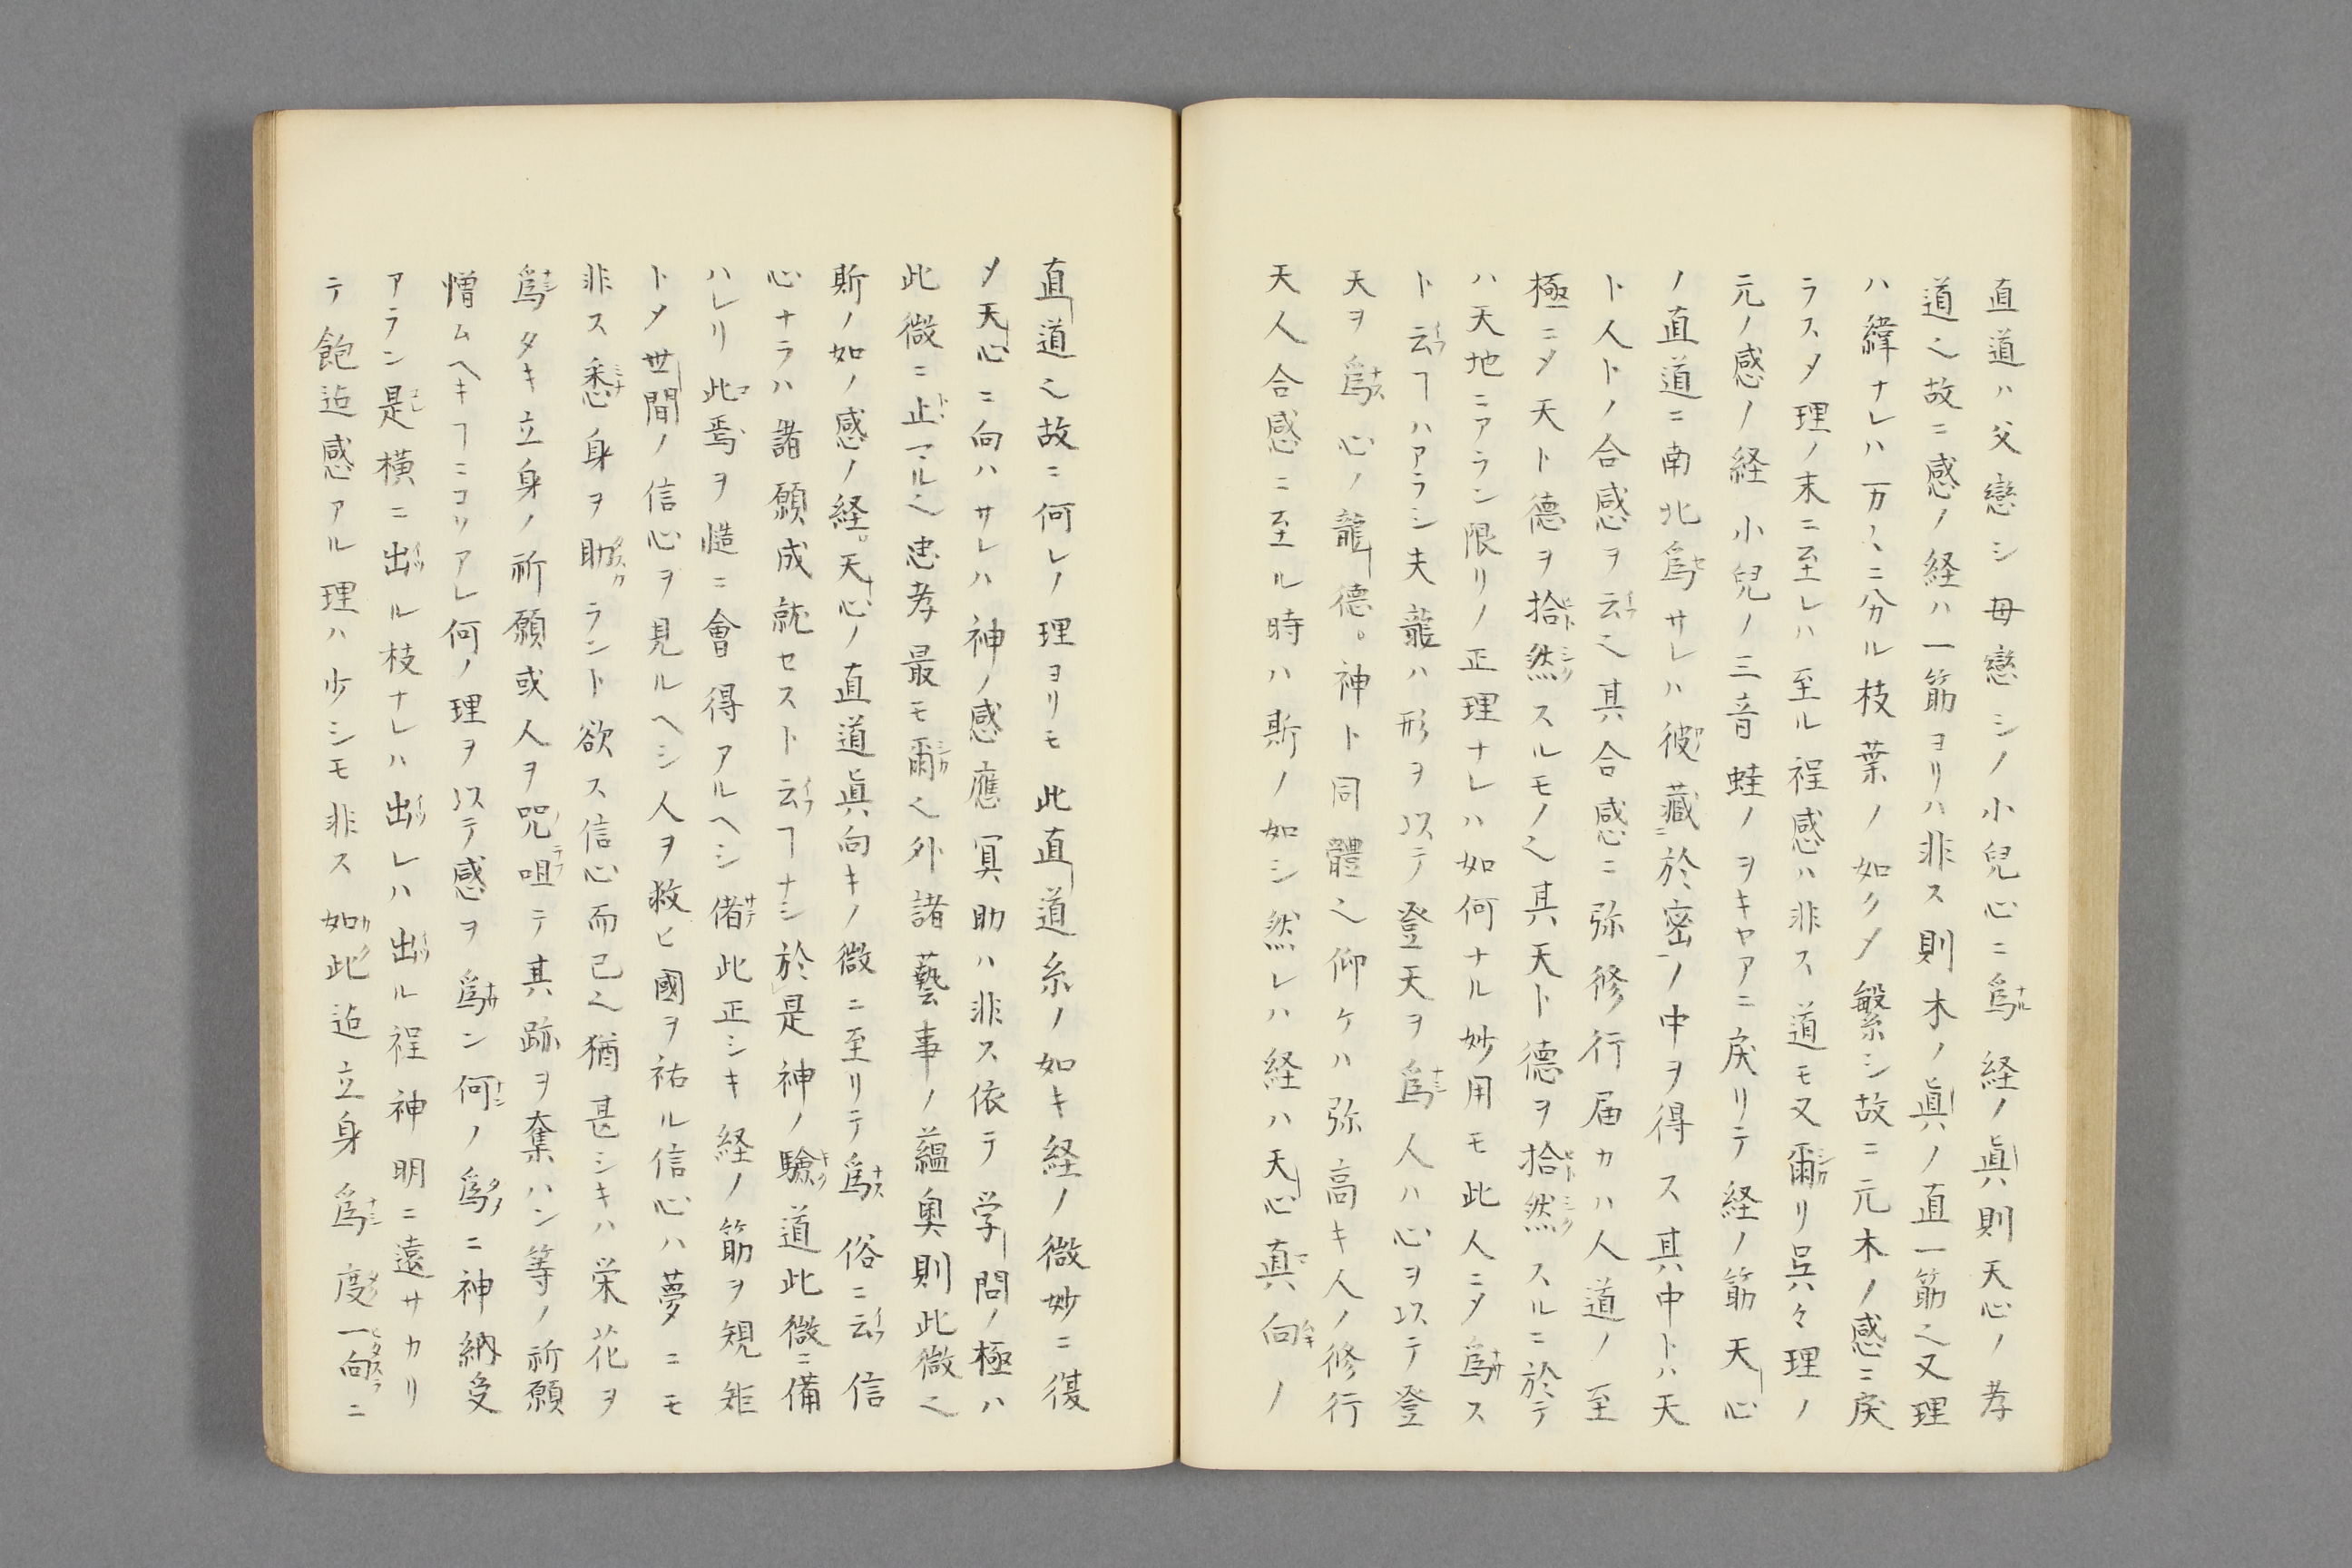 直道ハ父戀シ母戀シノ小兒心ニ爲ナル経ノ眞則天心ノ孝
道之故ニ感ノ経ハ一筋ヨリハ非ス則木ノ眞ノ直一筋之又理
ハ緯ナレハ万〻ニ分ル枝葉ノ如クメ繁シ故ニ元木ノ感ニ戻
ラスメ理ノ末ニ至レハ至ル程感ハ非ス道モ又爾シカリ呉々理ノ
元ノ感ノ経小兒ノ三音蛙ノヲキヤアニ戻リテ経ノ筋天心
ノ直道ニ南北爲サレハ彼藏ニ於密ノ中ヲ得ス其中トハ天
ト人トノ合感ヲ云イフ之其合感ニ弥修行届カハ人道ノ至
極ニメ天ト德ヲ拾ヒト然シクスルモノ之其天ト德ヲ拾ヒト然シクスルニ於テ
ハ天地ニアラン限リノ正理ナレハ如何ナル妙用モ此人ニメ爲ナサス
ト云イフヿハアラシ夫龍ハ形ヲ以テ登天ヲ爲ナシ人ハ心ヲ以テ登
天ヲ爲ナス心ノ龍德。神ト同體之仰ケハ弥高キ人ノ修行
天人合感ニ至ル時ハ斯ノ如シ然レハ経ハ天心真マ向ムキノ
直道之故ニ何レノ理ヨリモ此直道糸ノ如キ経ノ微妙ニ復
メ天心ニ向ハサレハ神ノ感應冥助ハ非ス依テ学問ノ極ハ
此微ニ止トヽマル之忠孝最モ爾シカ之外諸藝事ノ蘊奥則此微之
斯ノ如ノ感ノ経。天心ノ直道眞向キノ微ニ至リテ爲ナス俗ニ云イフ信
心ナラハ諸願成就セスト云イフヿナシ於是神ノ驗キヽ道此微ニ備
ハレリ此コ焉ヽヲ慥ニ會得アルヘシ偖サテ此正シキ経ノ筋ヲ規矩
トメ世間ノ信心ヲ見ルヘシ人ヲ救ヒ國ヲ祐ル信心ハ夢ニモ
非ス悉ミナ身ヲ助タスカラント欲ス信心而已之猶甚シキハ栄花ヲ
爲ナシタキ立身ノ祈願或人ヲ咒咀テ其跡ヲ奪ハン等ノ祈願
憎ムヘキヿニコソアレ何ノ理ヲ以テ感ヲ爲ナサン何ナンノ爲タメニ神納受
アラン是コレ横ニ出イツル枝ナレハ出イツレハ出イツル程神明ニ遠サカリ
テ飽迠感アル理ハ少シモ非ス如カク此迠立身爲ナシ度タク一向ヒタスラニ